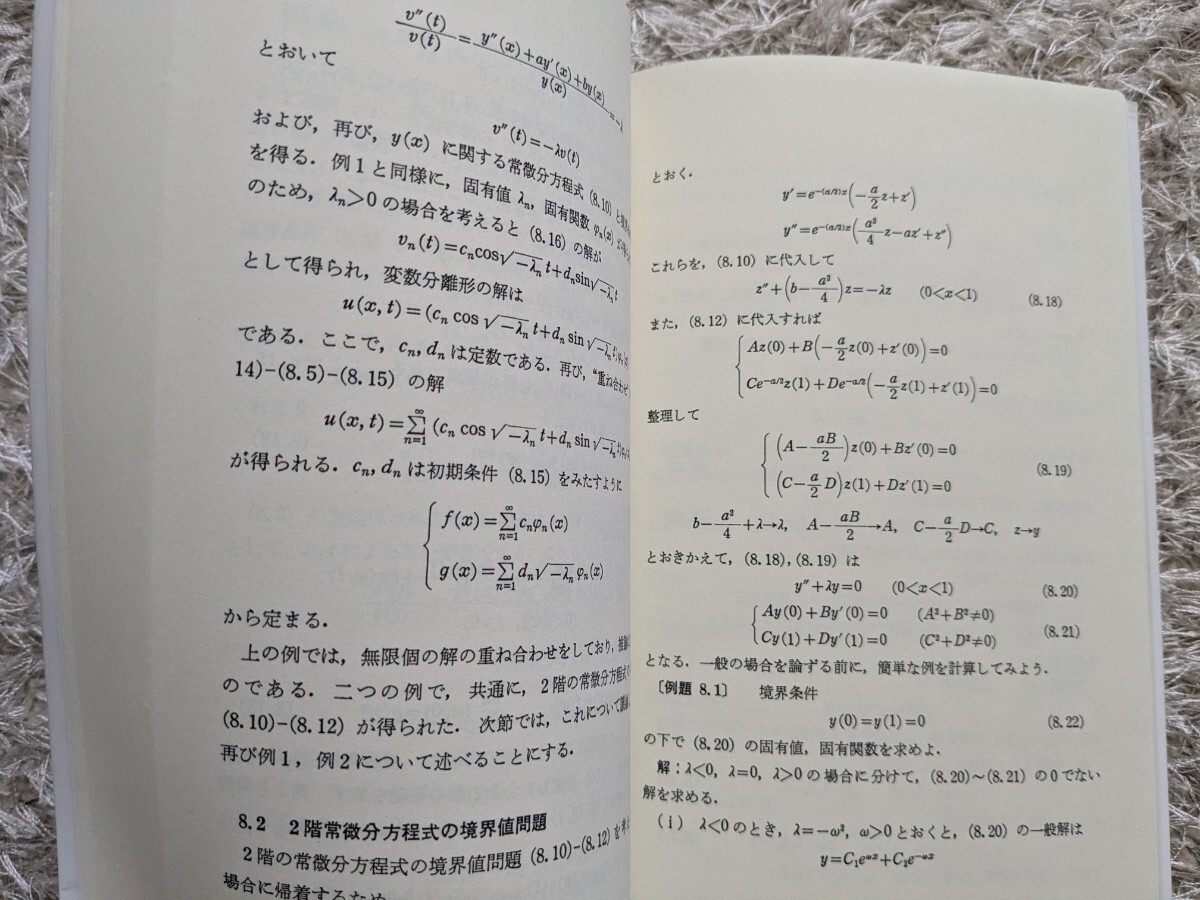 v″(t)/v(t) = (y″(x)+ay′(x)+by(x))/y(x) = −λ
とおいて
v″(t)=−λv(t)
および，再び，y(x) に関する常微分方程式 (8.10) と
を得る．例1と同様に，固有値 λₙ，固有関数 φₙ(x)
のため，λₙ>0 の場合を考えると (8.16) の解が
vₙ(t)=cₙcos√−λₙ t+dₙsin√−λₙ t
として得られ，変数分離形の解は
u(x, t)=(cₙ cos √−λₙ t+dₙ sin √−λₙ t)φₙ
である．ここで，cₙ, dₙ は定数である．再び，“重ね合わせ
14)−(8.5)−(8.15) の解
u(x, t)=∑ₙ₌₁^∞ (cₙ cos √−λₙ t+dₙ sin √−λₙ t)
が得られる．cₙ, dₙ は初期条件 (8.15) をみたすように
f(x)=∑ₙ₌₁^∞ cₙφₙ(x)
g(x)=∑ₙ₌₁^∞ dₙ√−λₙ φₙ(x)
から定まる．
上の例では，無限個の解の重ね合わせをしており，
のである．二つの例で，共通に，2階の常微分方程式の
(8.10)−(8.12) が得られた．次節では，これについて
再び例1，例2について述べることにする．
8.2 2階常微分方程式の境界値問題
2階の常微分方程式の境界値問題 (8.10)−(8.12) を
場合に帰着するため
とおく．
y′=e^{−(a/2)x}(−a/2 z+z′)
y″=e^{−(a/2)x}(a²/4 z−az′+z″)
これらを，(8.10) に代入して
z″+(b−a²/4)z=−λz (0<x<1) (8.18)
また，(8.12) に代入すれば
Az(0)+B(−a/2 z(0)+z′(0))=0
Ce^{−a/2}z(1)+De^{−a/2}(−a/2 z(1)+z′(1))=0
整理して
(A−aB/2)z(0)+Bz′(0)=0
(C−a/2 D)z(1)+Dz′(1)=0 (8.19)
b−a²/4+λ→λ, A−aB/2→A, C−a/2 D→C, z→y
とおきかえて，(8.18)，(8.19) は
y″+λy=0 (0<x<1) (8.20)
Ay(0)+By′(0)=0 (A²+B²≠0)
Cy(1)+Dy′(1)=0 (C²+D²≠0) (8.21)
となる．一般の場合を論ずる前に，簡単な例を計算してみよう．
［例題 8.1］ 境界条件
y(0)=y(1)=0 (8.22)
の下で (8.20) の固有値，固有関数を求めよ．
解：λ<0，λ=0，λ>0 の場合に分けて，(8.20)〜(8.21) の0でない
解を求める．
(ⅰ) λ<0 のとき，λ=−ω²，ω>0 とおくと，(8.20) の一般解は
y=C₁e^{ωx}+C₂e^{−ωx}